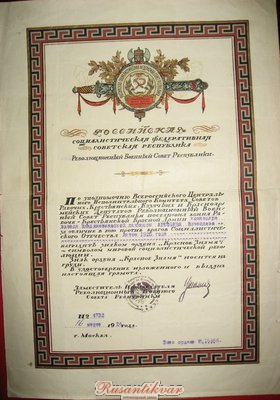 РОССИЙСКАЯ
СОЦИАЛИСТИЧЕСКАЯ ФЕДЕРАТИВНАЯ
СОВЕТСКАЯ РЕСПУБЛИКА
Революционный Военный Совет Республики.
По уполномочию Всероссийского Централь-
ного Исполнительного Комитета Советов
Рабочих, Крестьянских, Казачьих и Красноар-
мейских Депутатов Революционный Воен-
ный Совет Республики
Рабоче-Крестьянской Красной Армии
за отличие в бою против врагов Социалистиче-
ского Отечества
наградить знаком ордена „Красное Знамя“
—символом мировой социалистической рево-
люции.
Знак ордена „Красное Знамя“ носится на
груди.
В удостоверение изложенного и выдана
настоящая грамота.
Заместитель Председателя
Революционного Военного
Совета Республики
№
192 г.
г. Москва.
Знак ордена №
Rusantikvar